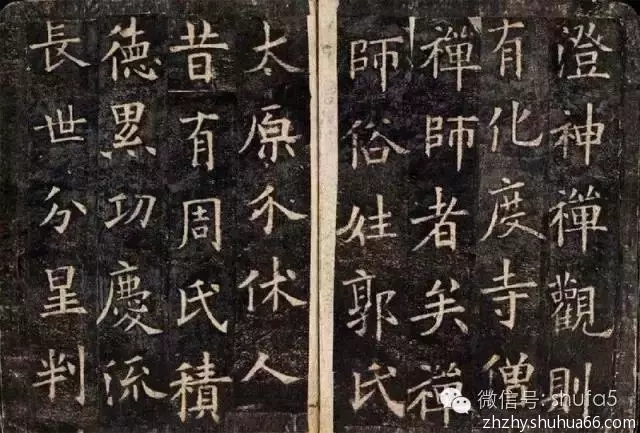 澄神禪觀則
有化度寺僧
禪師者矣禪
師俗姓郭氏
太原介休人
昔有周氏積
德累功慶流
長世分星判
微信号: shufa5
zhzhy.shuhua66.com